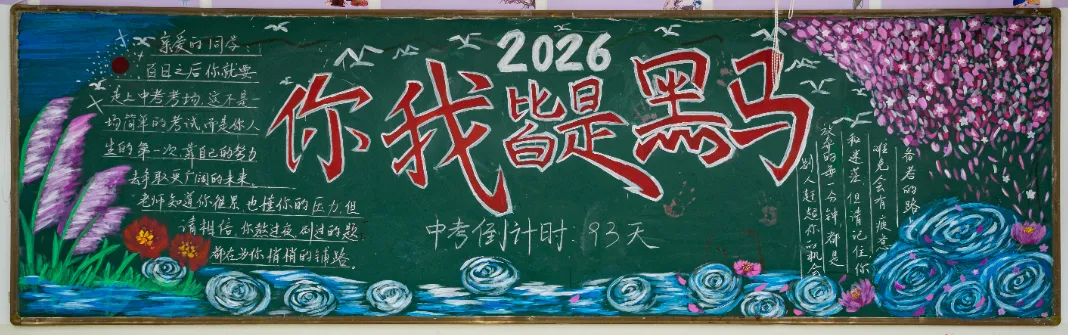 亲爱的同学:
百日之后你就要
走上中考考场,这不是一
场简单的考试,而是你人
生的第一次,靠自己的努力
去争取更广阔的未来。
老师知道你很累,也懂你的压力,但
请相信,你熬过夜,刷过的题,
都在为你悄悄的铺路。
2026
你我皆是黑马
中考倒计时:93天
备考的路
难免会有疲惫
和迷茫,但请记住,你
放弃的每一分钟,都是
别人赶超你的机会